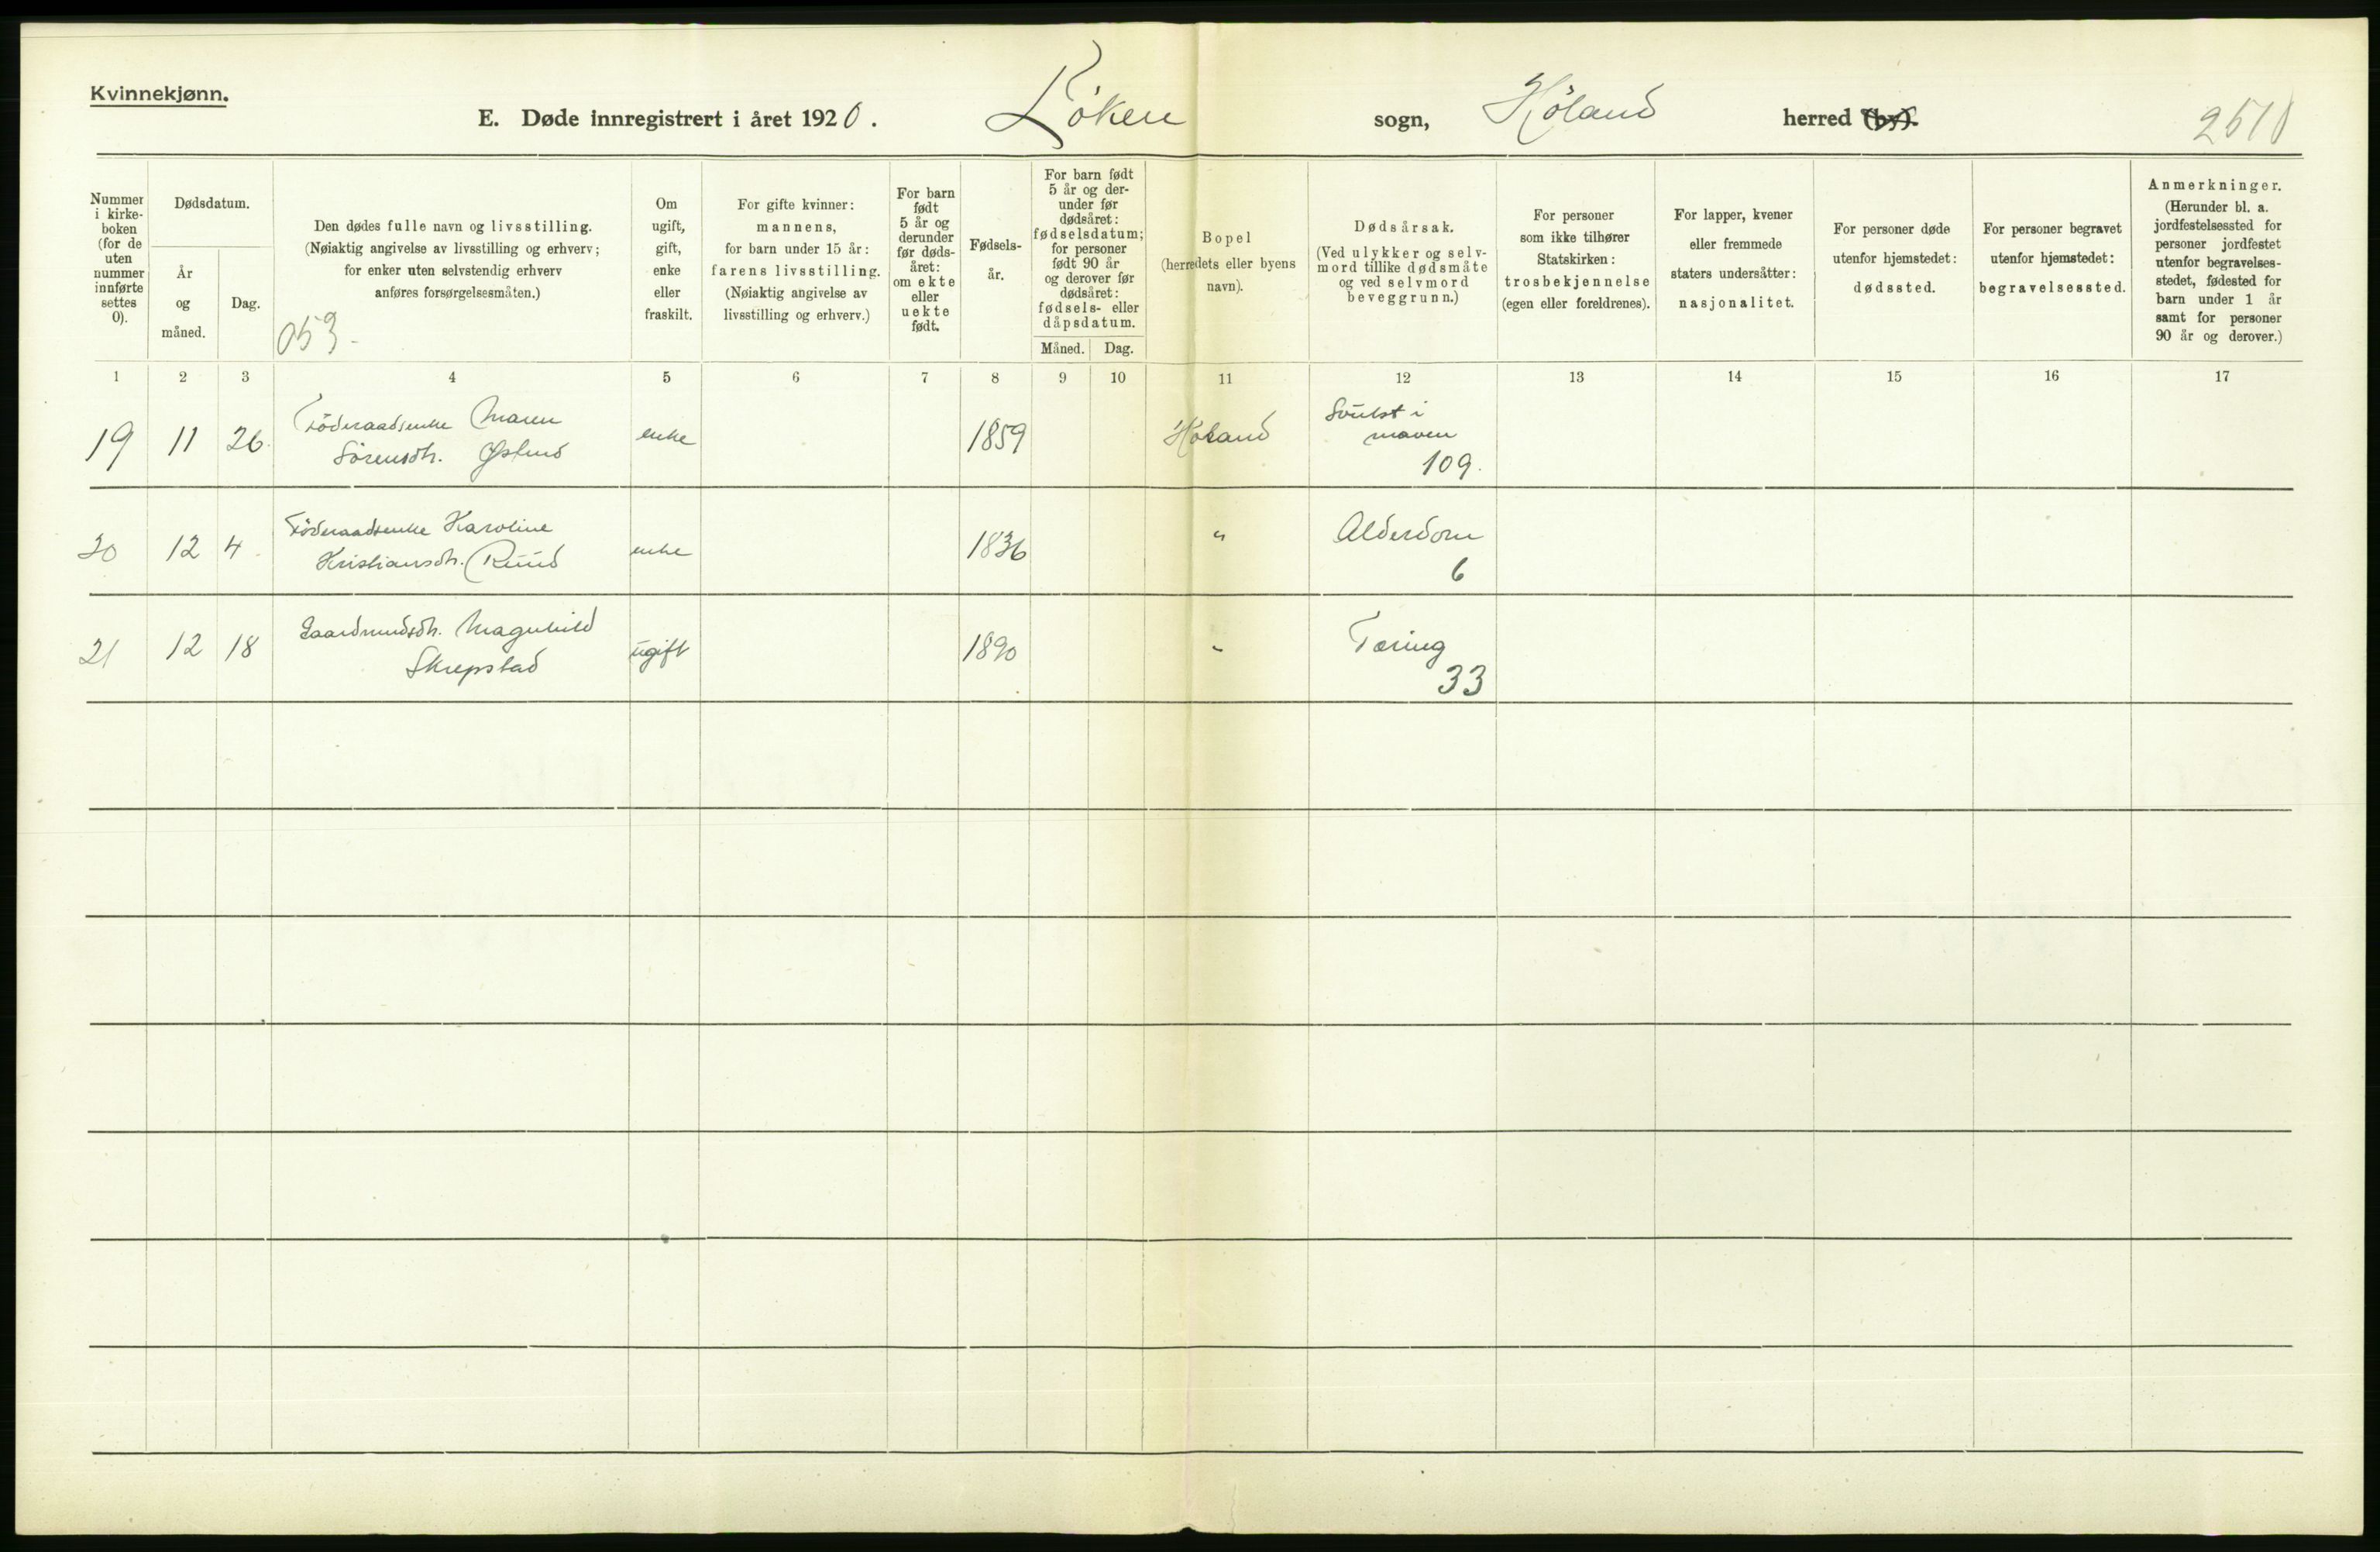 Kvinnekjønn.
E. Døde innregistrert i året 1920. Löken sogn, Höland herred (by).
2510
Nummer i kirke-boken (for de uten nummer innførte settes 0).
Dødsdatum.
År og måned.
Dag.
Den dødes fulle navn og livsstilling.
(Nøiaktig angivelse av livsstilling og erhverv;
for enker uten selvstendig erhverv
anføres forsørgelsesmåten.)
053-
Om ugift, gift, enke eller fraskilt.
For gifte kvinner:
mannens,
for barn under 15 år:
farens livsstilling.
(Nøiaktig angivelse av
livsstilling og erhverv.)
For barn født 5 år og derunder før døds-året: om ekte eller uekte født.
Fødsels-år.
For barn født 5 år og der-under før dødsåret: fødselsdatum; for personer født 90 år og derover før dødsåret: fødsels- eller dåpsdatum.
Måned. Dag.
Bopel
(herredets eller byens
navn).
Dødsårsak.
(Ved ulykker og selv-
mord tillike dødsmåte
og ved selvmord
beveggrunn.)
For personer
som ikke tilhører
Statskirken:
trosbekjennelse
(egen eller foreldrenes).
For lapper, kvener
eller fremmede
staters undersåtter:
nasjonalitet.
For personer døde
utenfor hjemstedet:
dødssted.
For personer begravet
utenfor hjemstedet:
begravelsessted.
Anmerkninger.
(Herunder bl. a.
jordfestelsessted for
personer jordfestet
utenfor begravelses-
stedet, fødested for
barn under 1 år
samt for personer
90 år og derover.)
1 2 3 4 5 6 7 8 9 10 11 12 13 14 15 16 17
19 11 26. Föderaadsenke Maren Sörensdtr. Østend enke 1859 Höland Svulst i maven 109.
20 12 4. Föderaadsenke Karoline Kristiansdtr. Ruud enke 1836 " Alderdom 6
21 12 18 Gaardmandsdtr. Magnhild Skrepstad ugift 1890 " Tæring 33